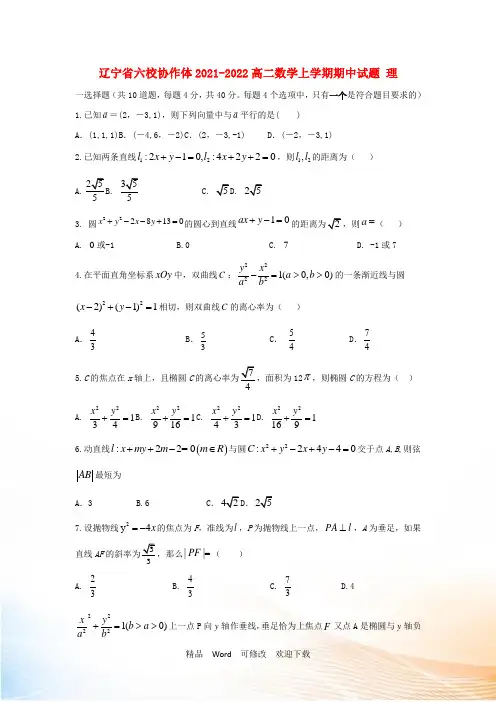 辽宁省六校协作体2021-2022高二数学上学期期中试题 理
一选择题（共10道题，每题4分，共40分。每题4个选项中，只有一个是符合题目要求的）
1.已知a=(2，－3,1)，则下列向量中与a平行的是( )
A．(1,1,1)B．(－4,6，－2)C．(2，－3,-1) D．(－2，－3,1)
2.已知两条直线l₁:2x+y−1=0,l₂:4x+2y+2=0，则l₁,l₂的距离为（ ）
A.2√5/5 B. 3√5/5 C. √5 D. 2√5
3. 圆x²+y²−2x−8y+13=0的圆心到直线ax+y−1=0的距离为√2，则a=（ ）
A. 0或-1 B.0 C. 7 D. -1或7
4.在平面直角坐标系xOy中，双曲线C：y²/a²−x²/b²=1(a>0,b>0)的一条渐近线与圆
(x−2)²+(y−1)²=1相切，则双曲线C的离心率为（ ）
A．4/3 B．5/3 C．5/4 D．7/4
5.C的焦点在x轴上，且椭圆C的离心率为√7/4，面积为12π，则椭圆C的方程为（ ）
A. x²/3+y²/4=1 B. x²/9+y²/16=1 C. x²/4+y²/3=1 D. x²/16+y²/9=1
6.动直线l:x+my+2m−2=0(m∈R)与圆C:x²+y²−2x+4y−4=0交于点A,B,则弦
|AB|最短为
A．3 B.6 C．4√2 D．2√5
7.设抛物线y²=−4x的焦点为F，准线为l，P为抛物线上一点，PA⊥l，A为垂足，如果
直线AF的斜率为√3/3，那么|PF|=（ ）
A. 2/3 B. 4/3 C. 7/3 D.4
x²/a²+y²/b²=1(b>a>0)上一点P向y轴作垂线,垂足恰为上焦点F又点A是椭圆与y轴负
精品 Word 可修改 欢迎下载